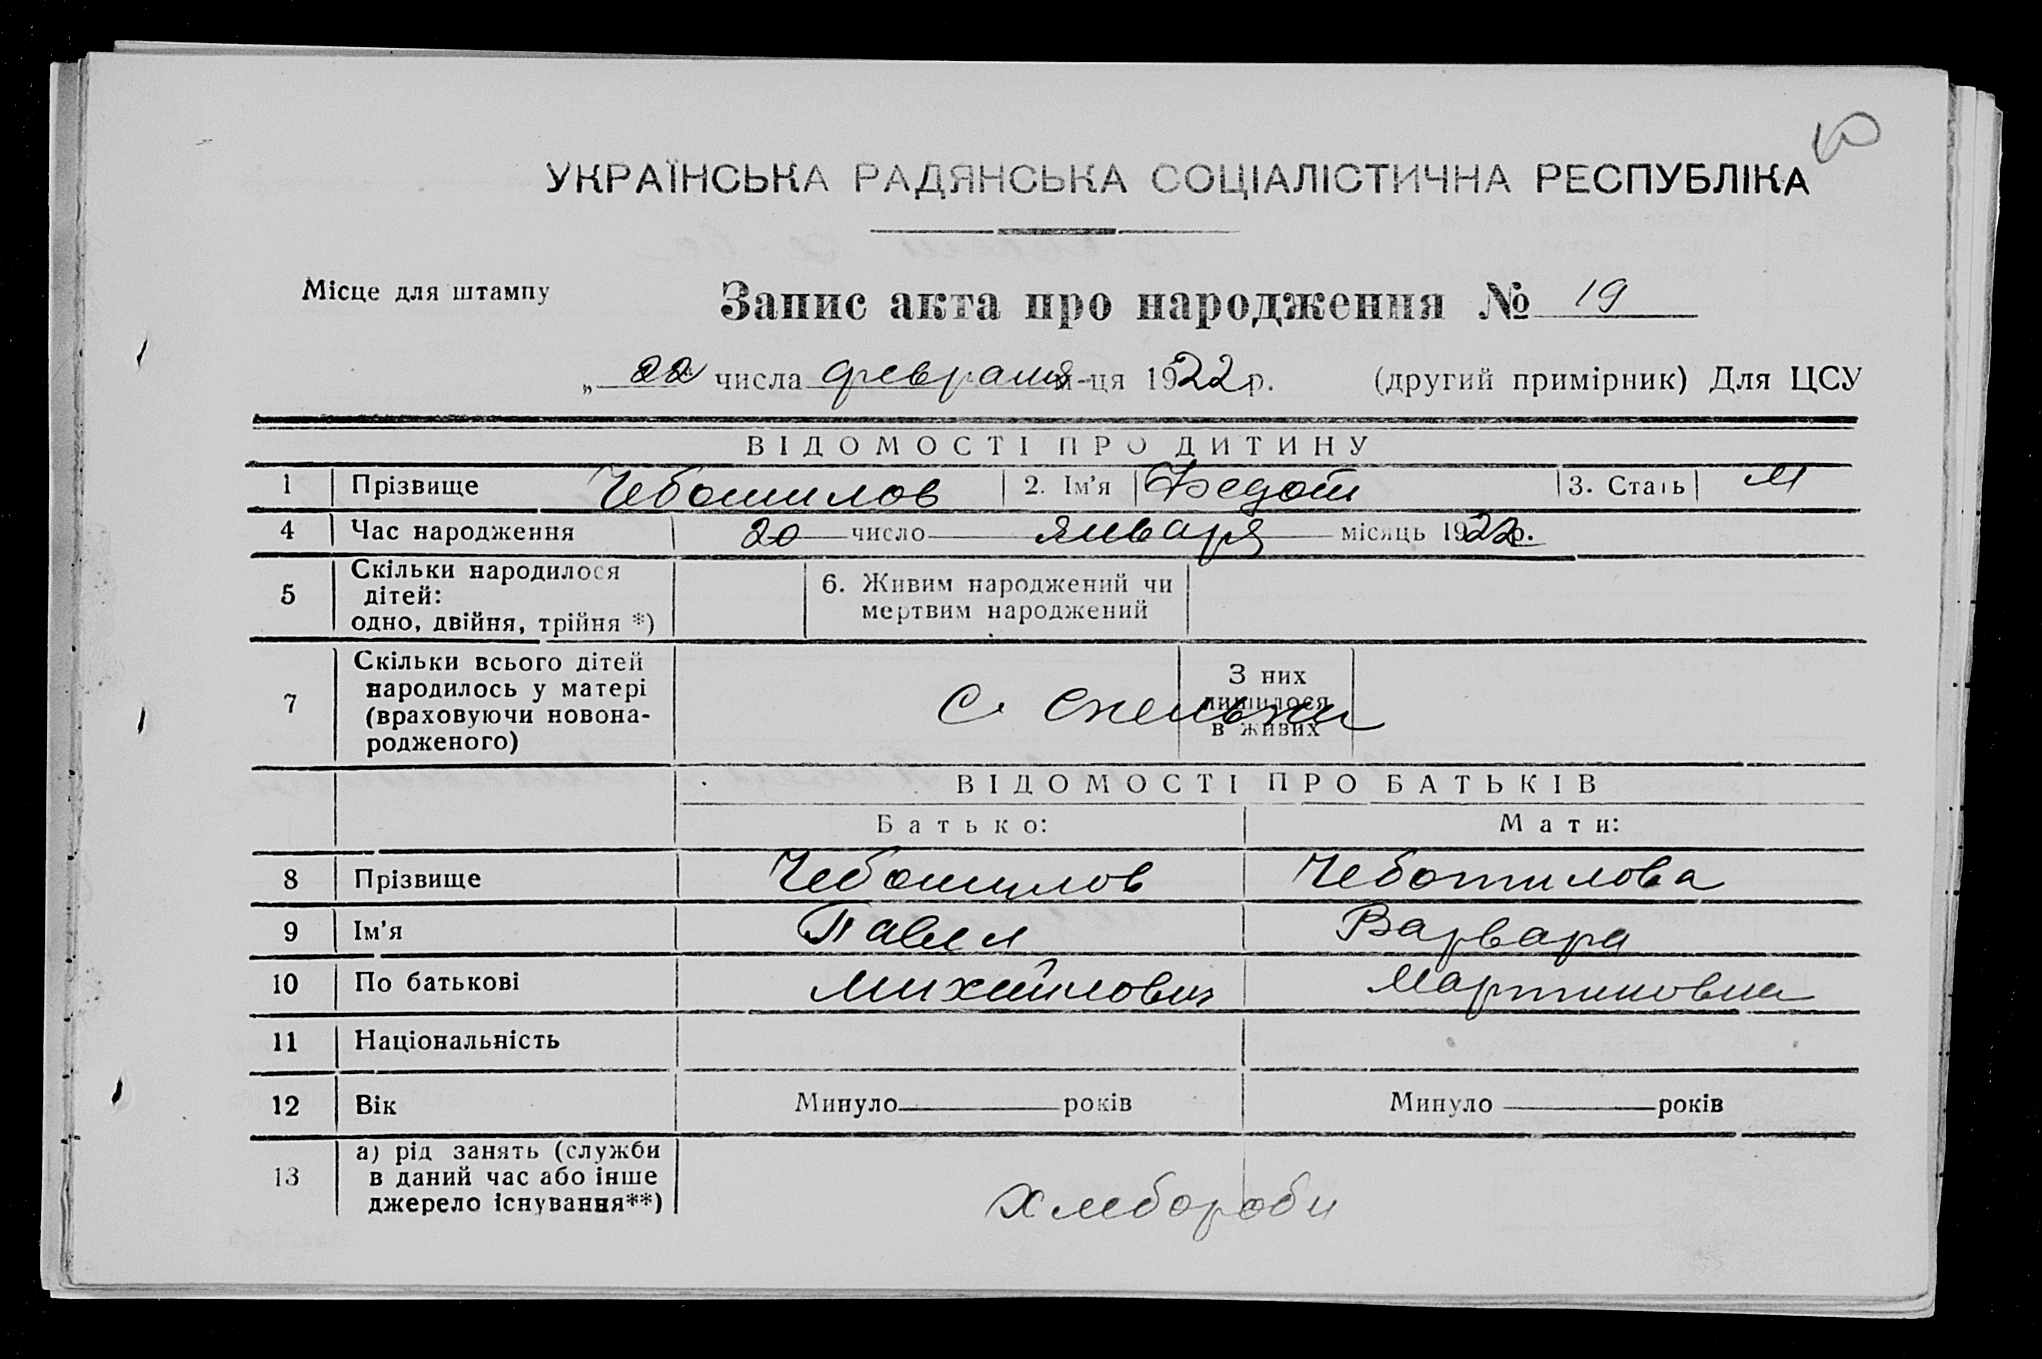 УКРАЇНСЬКА РАДЯНСЬКА СОЦІАЛІСТИЧНА РЕСПУБЛІКА
Місце для штампу
Запис акта про народження № 19
„ 22 числа февраля м-ця 1922 р. (другий примірник) Для ЦСУ
ВІДОМОСТІ ПРО ДИТИНУ
1 Прізвище Чеботилов 2. Ім'я Федот 3. Стать М
4 Час народження 20 число января місяць 1922р.
5 Скільки народилося дітей: одно, двійня, трійня *) 6. Живим народжений чи мертвим народжений
7 Скільки всього дітей народилось у матері (враховуючи новонародженого) З них лишилося в живих
С. Скельки
ВІДОМОСТІ ПРО БАТЬКІВ
Батько: Мати:
8 Прізвище Чеботилов Чеботилова
9 Ім'я Павел Варвара
10 По батькові Михайлович Мартиновна
11 Національність
12 Вік Минуло років Минуло років
13 а) рід занять (служби в даний час або інше джерело існування**)
Хлебороби